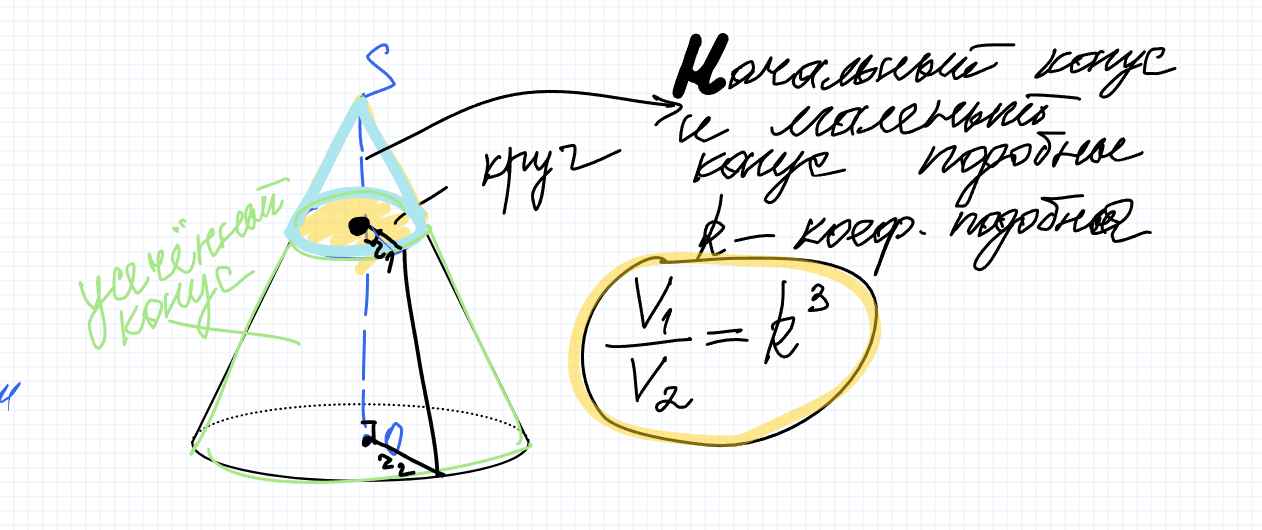 S
Начальный конус
и маленький
конус подобные
круг
k – коеф. подобия
усечённый
конус
r₁
V₁
— = k³
V₂
O
r₂